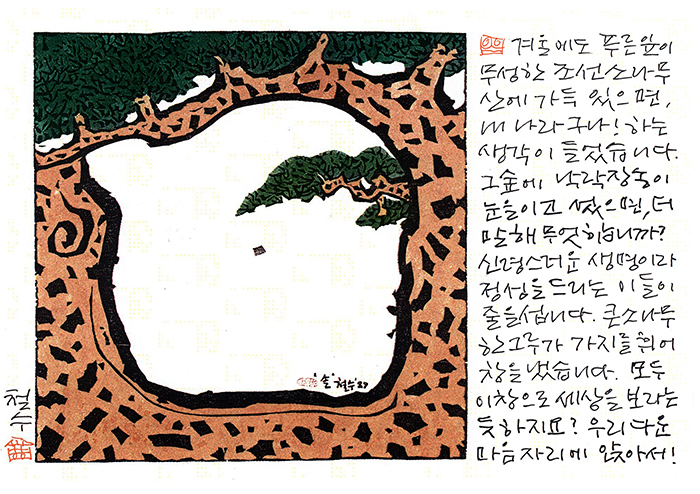 겨울에도 푸른잎이
무성한 조선소나무
산에 가득 있으면,
내 나라구나! 하는
생각이 들었습니다.
그숲에 낙락장송이
눈을이고 섰으면, 더
말해 무엇합니까?
신령스러운 생명이라
정성을드리는 이들이
줄을섭니다. 큰소나무
한그루가 가지를 휘어
창을 냈습니다. 모두
이창으로 세상을 보라는
듯하지요? 우리다운
마음자리에 앉아서!
'솔' 철수'27
철수